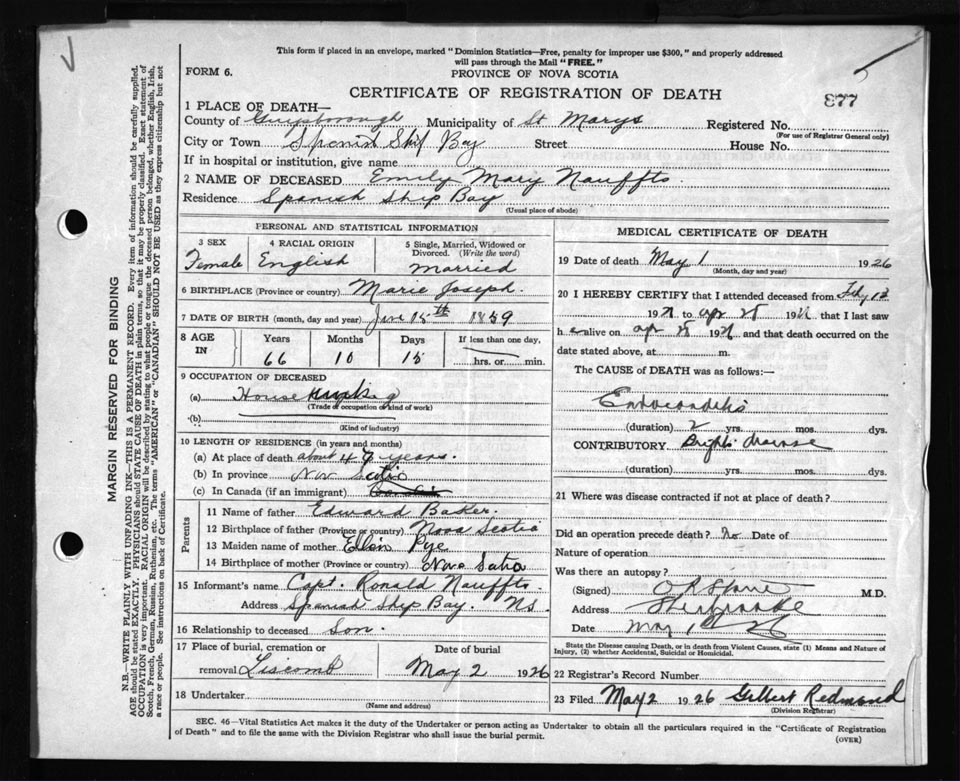 This form if placed in an envelope, marked "Dominion Statistics—Free, penalty for improper use $300," and properly addressed
will pass through the Mail "FREE."
FORM 6.
PROVINCE OF NOVA SCOTIA
CERTIFICATE OF REGISTRATION OF DEATH
877
1 PLACE OF DEATH—
County of Guysborough Municipality of St Marys Registered No.
(For use of Registrar General only)
City or Town Spanish Ship Bay Street House No.
If in hospital or institution, give name
2 NAME OF DECEASED Emily Mary Nauffts.
Residence Spanish Ship Bay
(Usual place of abode)
PERSONAL AND STATISTICAL INFORMATION
3 SEX
Female
4 RACIAL ORIGIN
English
5 Single, Married, Widowed or
Divorced. (Write the word)
Married
6 BIRTHPLACE (Province or country) Marie Joseph.
7 DATE OF BIRTH (month, day and year) 15th 1859
8 AGE IN
Years Months Days If less than one day,
66 10 15 hrs. or min.
9 OCCUPATION OF DECEASED
(a) House keeping
(Trade of occupation or kind of work)
(b)
(Kind of industry)
10 LENGTH OF RESIDENCE (in years and months)
(a) At place of death about 49 years.
(b) In province Nov Scotia
(c) In Canada (if an immigrant)
Parents
11 Name of father Edward Baker.
12 Birthplace of father (Province or country) Nova Scotia
13 Maiden name of mother Ellen Pye
14 Birthplace of mother (Province or country) Nova Scotia
15 Informant's name Capt. Ronald Nauffts
Address Spanish Ship Bay. Ns.
16 Relationship to deceased Son.
17 Place of burial, cremation or Date of burial
removal Liscomb May 2 1926
18 Undertaker
(Name and address)
MEDICAL CERTIFICATE OF DEATH
19 Date of death May 1 1926
(Month, day and year)
20 I HEREBY CERTIFY that I attended deceased from Feby 13
192 to apr 192 that I last saw
h e alive on apr 192 and that death occurred on the
date stated above, at m.
The CAUSE of DEATH was as follows:—
Endocarditis
(duration) 2 yrs. mos. dys.
CONTRIBUTORY Brights disease
(duration) yrs. mos. dys.
21 Where was disease contracted if not at place of death?
Did an operation precede death? No Date of
Nature of operation
Was there an autopsy?
(Signed) M.D.
Address Sherbrooke
Date May 1
State the Disease causing Death, or in death from Violent Causes, state (1) Means and Nature of
Injury, (2) whether Accidental, Suicidal or Homicidal.
22 Registrar's Record Number
23 Filed May 2 1926 Gilbert Redmond
(Division Registrar)
SEC. 46—Vital Statistics Act makes it the duty of the Undertaker or person acting as Undertaker to obtain all the particulars required in the "Certificate of Registration
of Death" and to file the same with the Division Registrar who shall issue the burial permit.
(OVER)
MARGIN RESERVED FOR BINDING
N.B.—WRITE PLAINLY WITH UNFADING INK—THIS IS A PERMANENT RECORD. Every item of information should be carefully supplied.
AGE should be stated EXACTLY. PHYSICIANS should STATE CAUSE OF DEATH in plain terms, so that it may be properly classified. Exact statement of
OCCUPATION is very important. RACIAL ORIGIN will be described by stating to what people or tongue the deceased person belonged, whether English, Irish,
Scotch, French, German, Russian, Ruthenian, etc. The terms "AMERICAN" or "CANADIAN" SHOULD NOT BE USED as they express citizenship but not
a race or people. See instructions on back of Certificate.